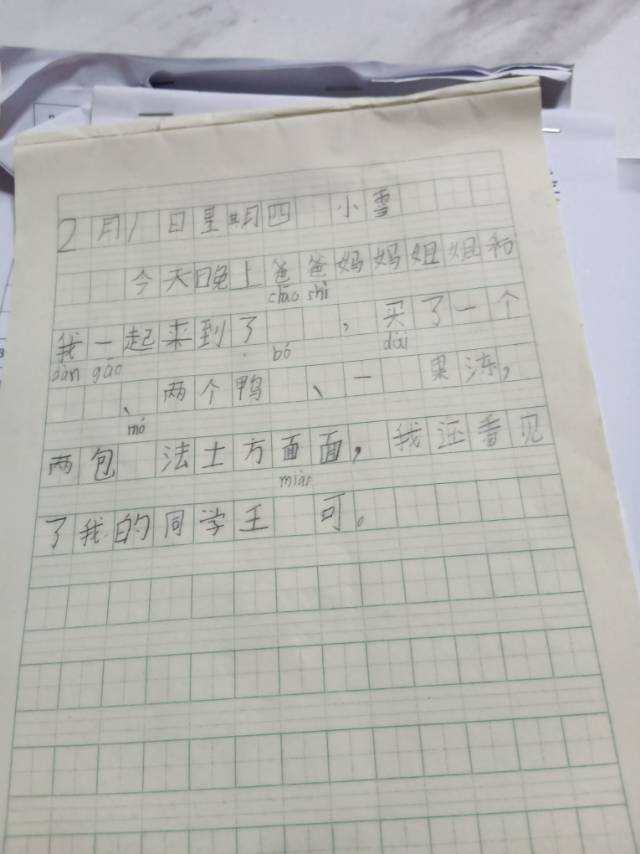 2月1日星期四 小雪
今天晚上爸爸妈妈姐姐和
chāo shì
我一起来到了 ，买了一个
dàn gāo bó dài
、两个鸭 、一 果冻，
mó
两包 法士方面面，我还看见
miáo
了我的同学王 可。